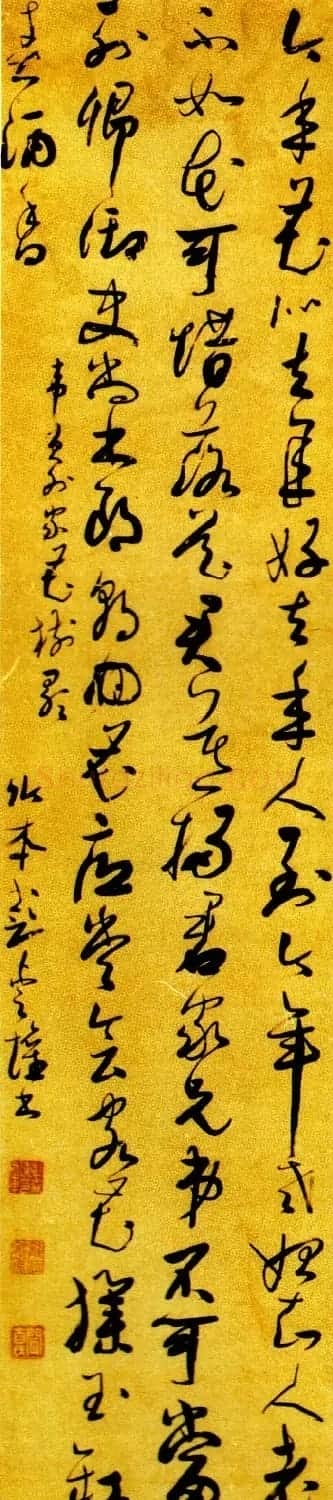 今年花似去年好去年人到今年老始知人老
不如花可惜落花君莫掃君家兄弟不可當
列卿御史尚書郎朝回花底常會客花撲玉缸
春酒香
韋員外家花樹歌
書